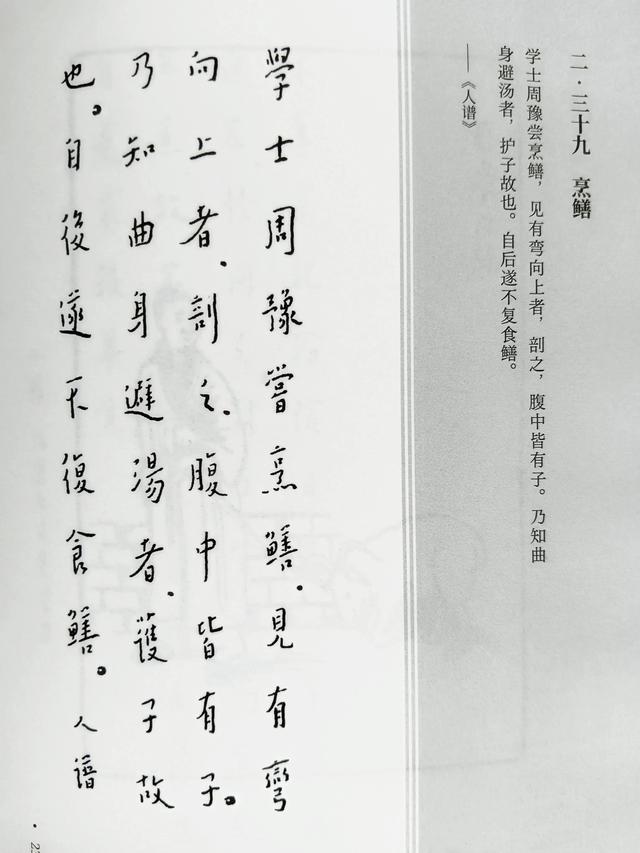 二·三十九　烹鳝
学士周豫尝烹鳝，见有弯向上者，剖之，腹中皆有子。乃知曲
身避汤者，护子故也。自后遂不复食鳝。
——《人谱》
學士周豫嘗烹鱔.見有彎
向上者.剖之.腹中皆有子。
乃知曲身避湯者.護子故
也。自後遂不復食鱔。人譜